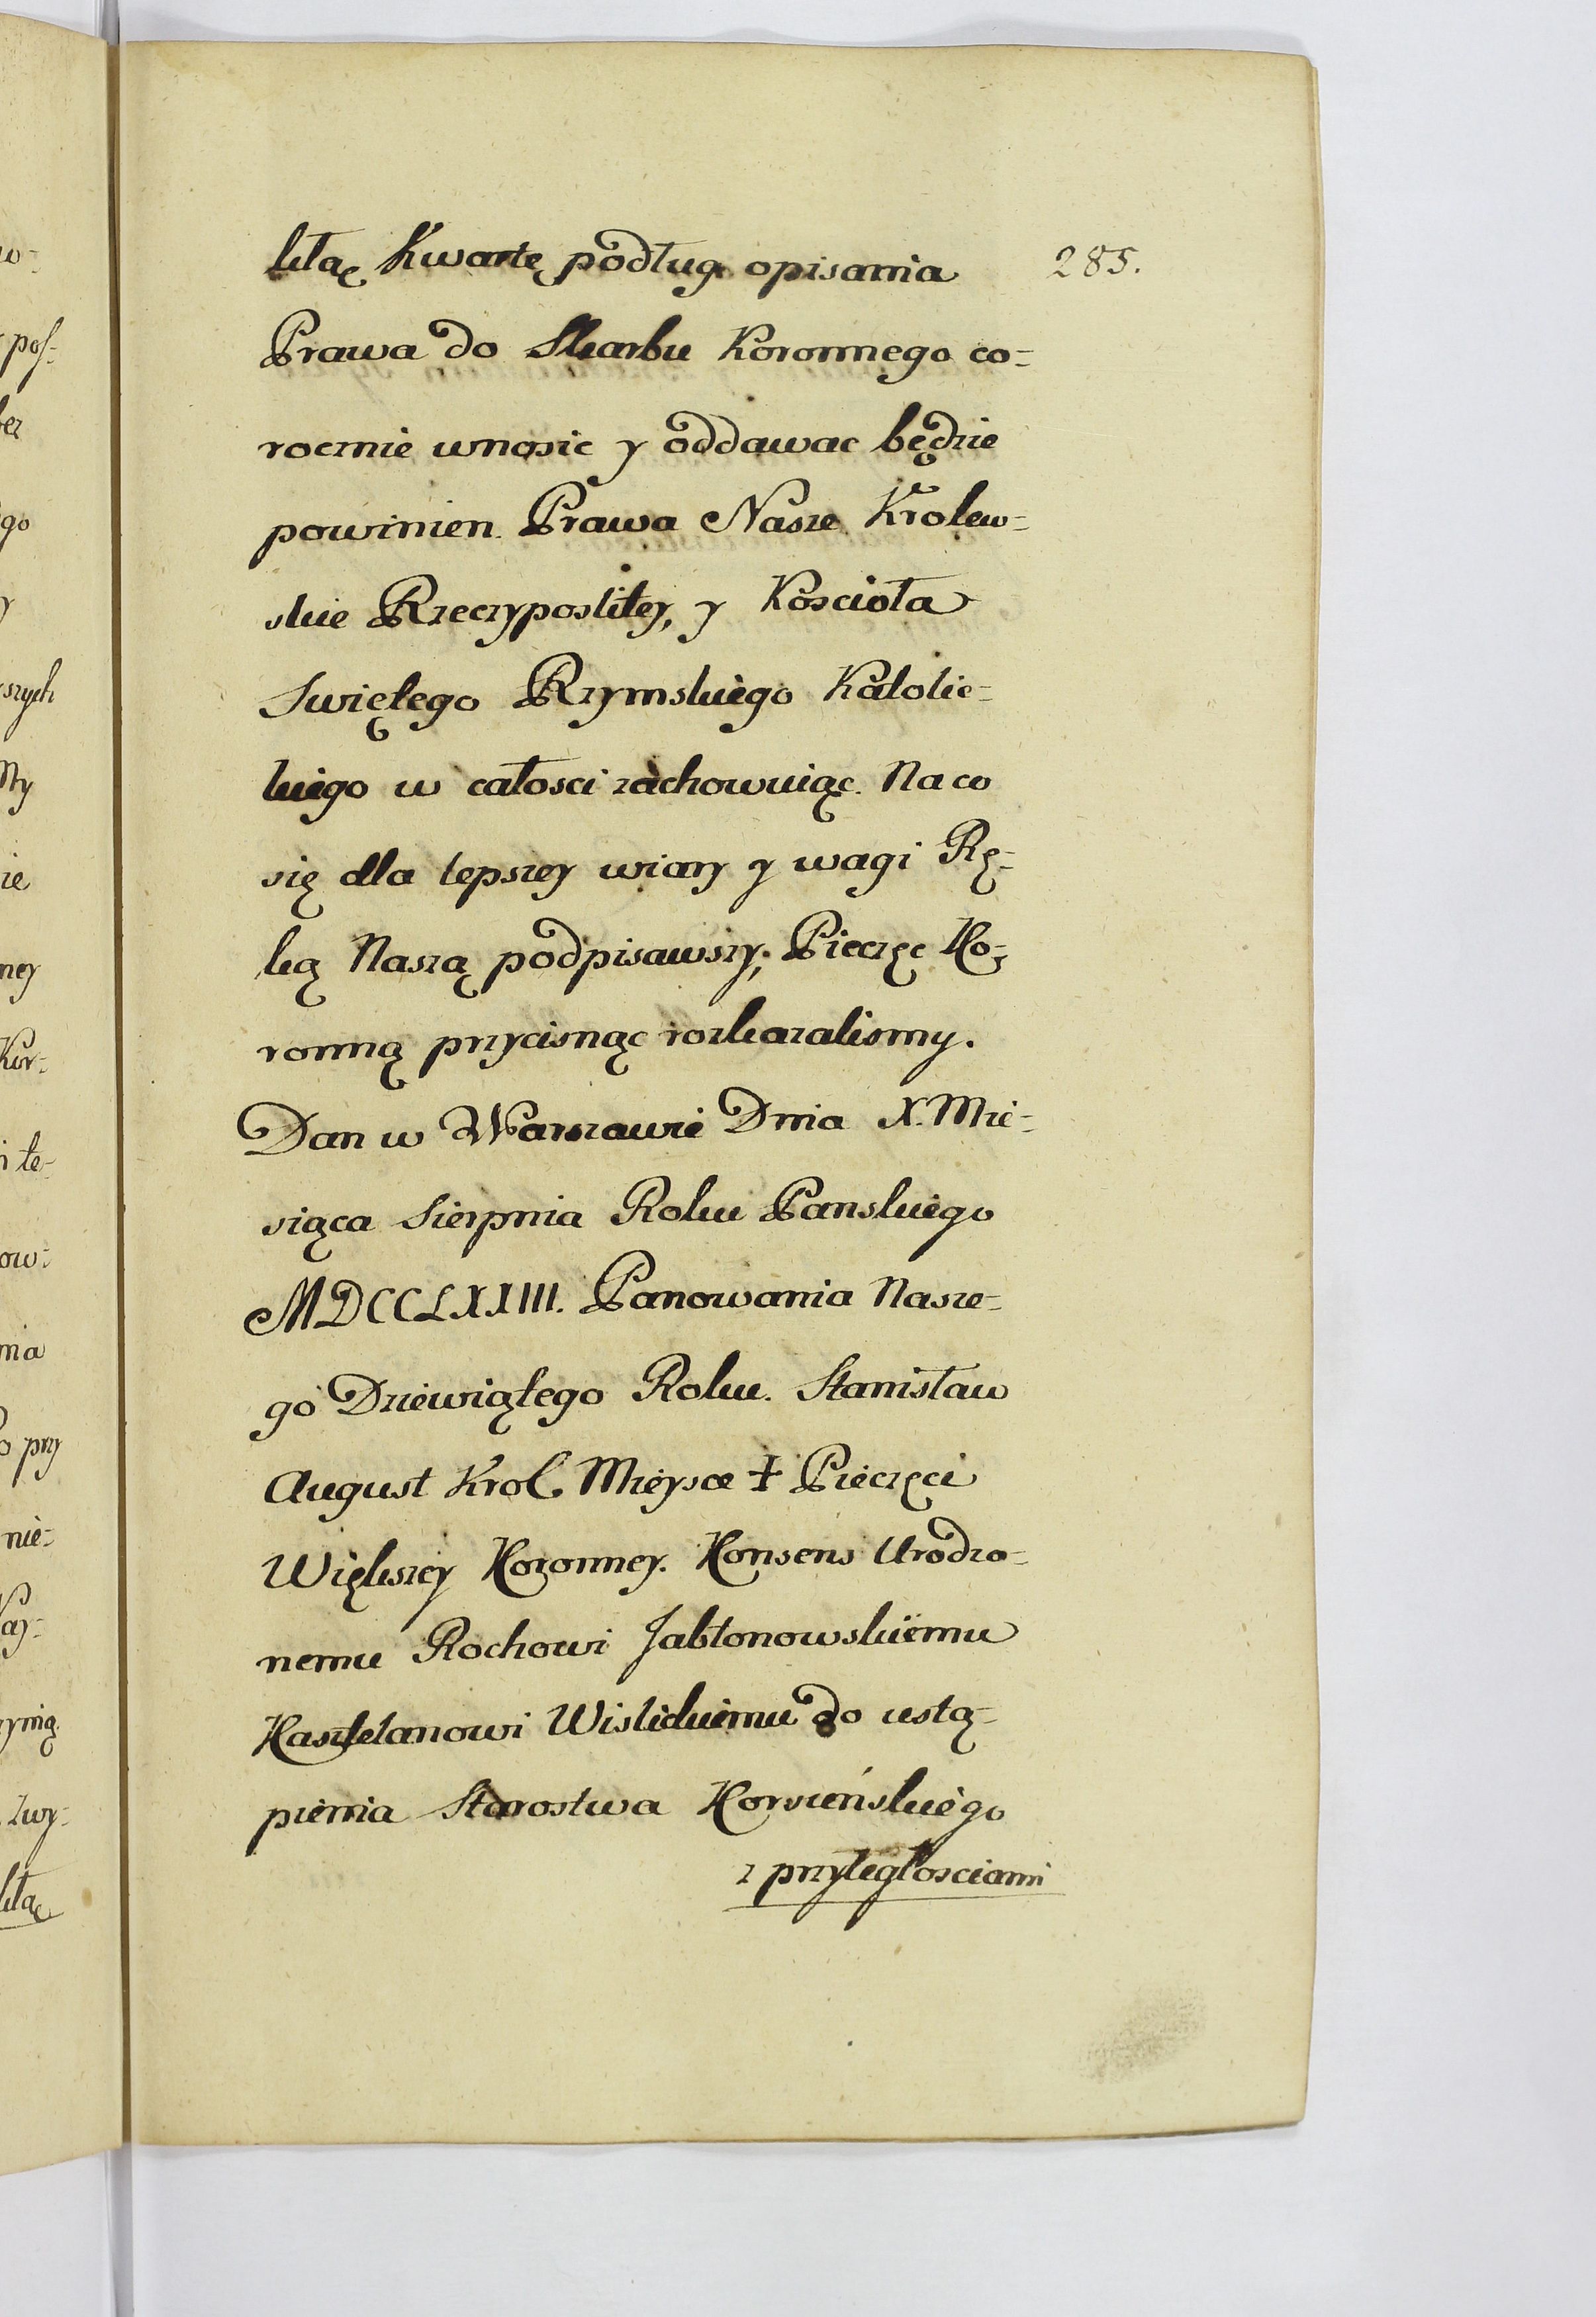 285.
litą Kwartę podług opisania
Prawa do Skarbu Koronnego co-
rocznie wnosic y oddawac będzie
powinien. Prawa Nasze Krolew-
skie Rzeczyposlitey, y Koscioła
Swiętego Rzymskiego Katolic-
kiego w całosci zachowuiąc. Na co
się dla lepszey wiary y wagi Rę-
ką Naszą podpisawszy, Pieczęc Ko-
ronną przycisnąc rozkazalismy.
Dan w Warszawie Dnia X. Mie-
siąca Sierpnia Roku Panskiego
MDCCLXXIII. Panowania Nasze-
go Dziewiątego Roku. Stanisław
August Krol. Mieysce ✝ Pieczęci
Większey Koronney. Konsens Urodzo-
nemu Rochowi Jabłonowskiemu
Kasztelanowi Wislickiemu do ustą-
pienia Starostwa Korsuńskiego
z przyległosciami